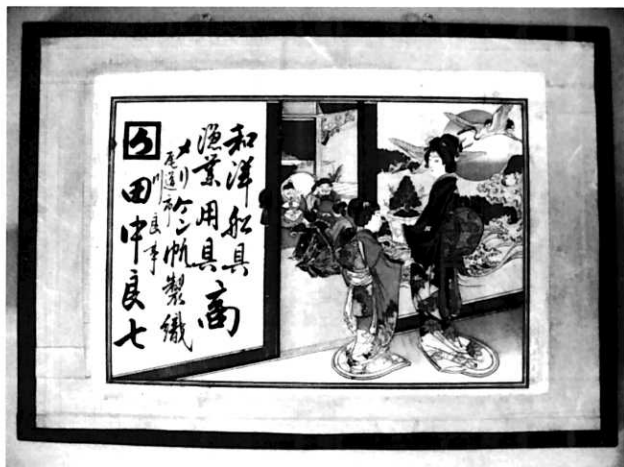 和洋舩具
漁業用具
商
メリケン帆製織
尾道市
川良事
田中良七